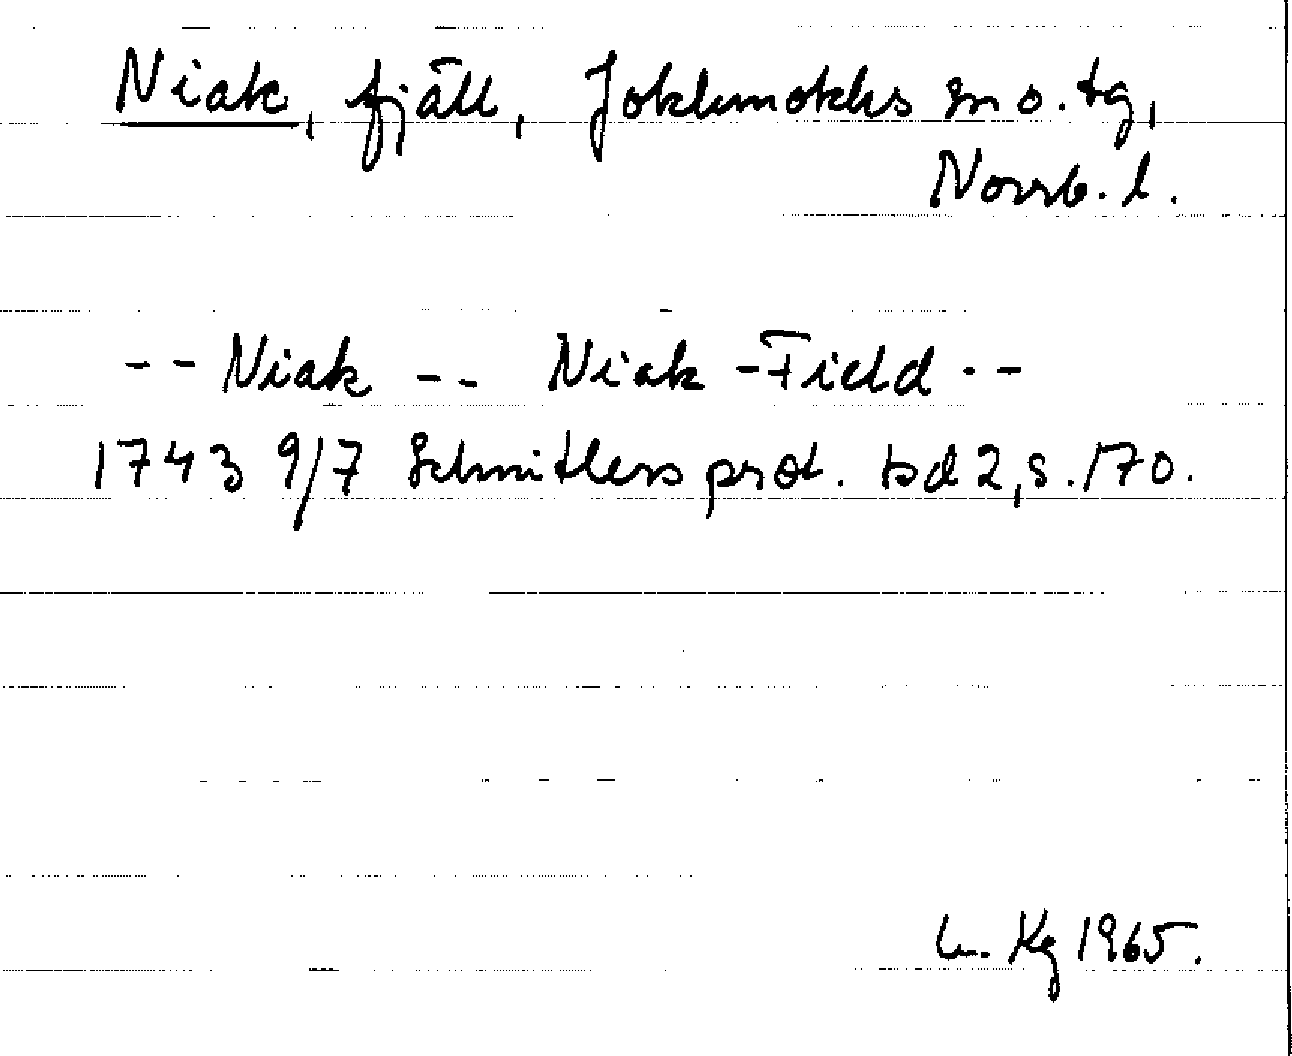 Niak, fjäll, Jokkmokks sn o. tg,
Norrb. l.
-- Niak -- Niak-Field --
1743 9/7 Schnitlers prot. bd 2, s. 170.
Kg 1965.